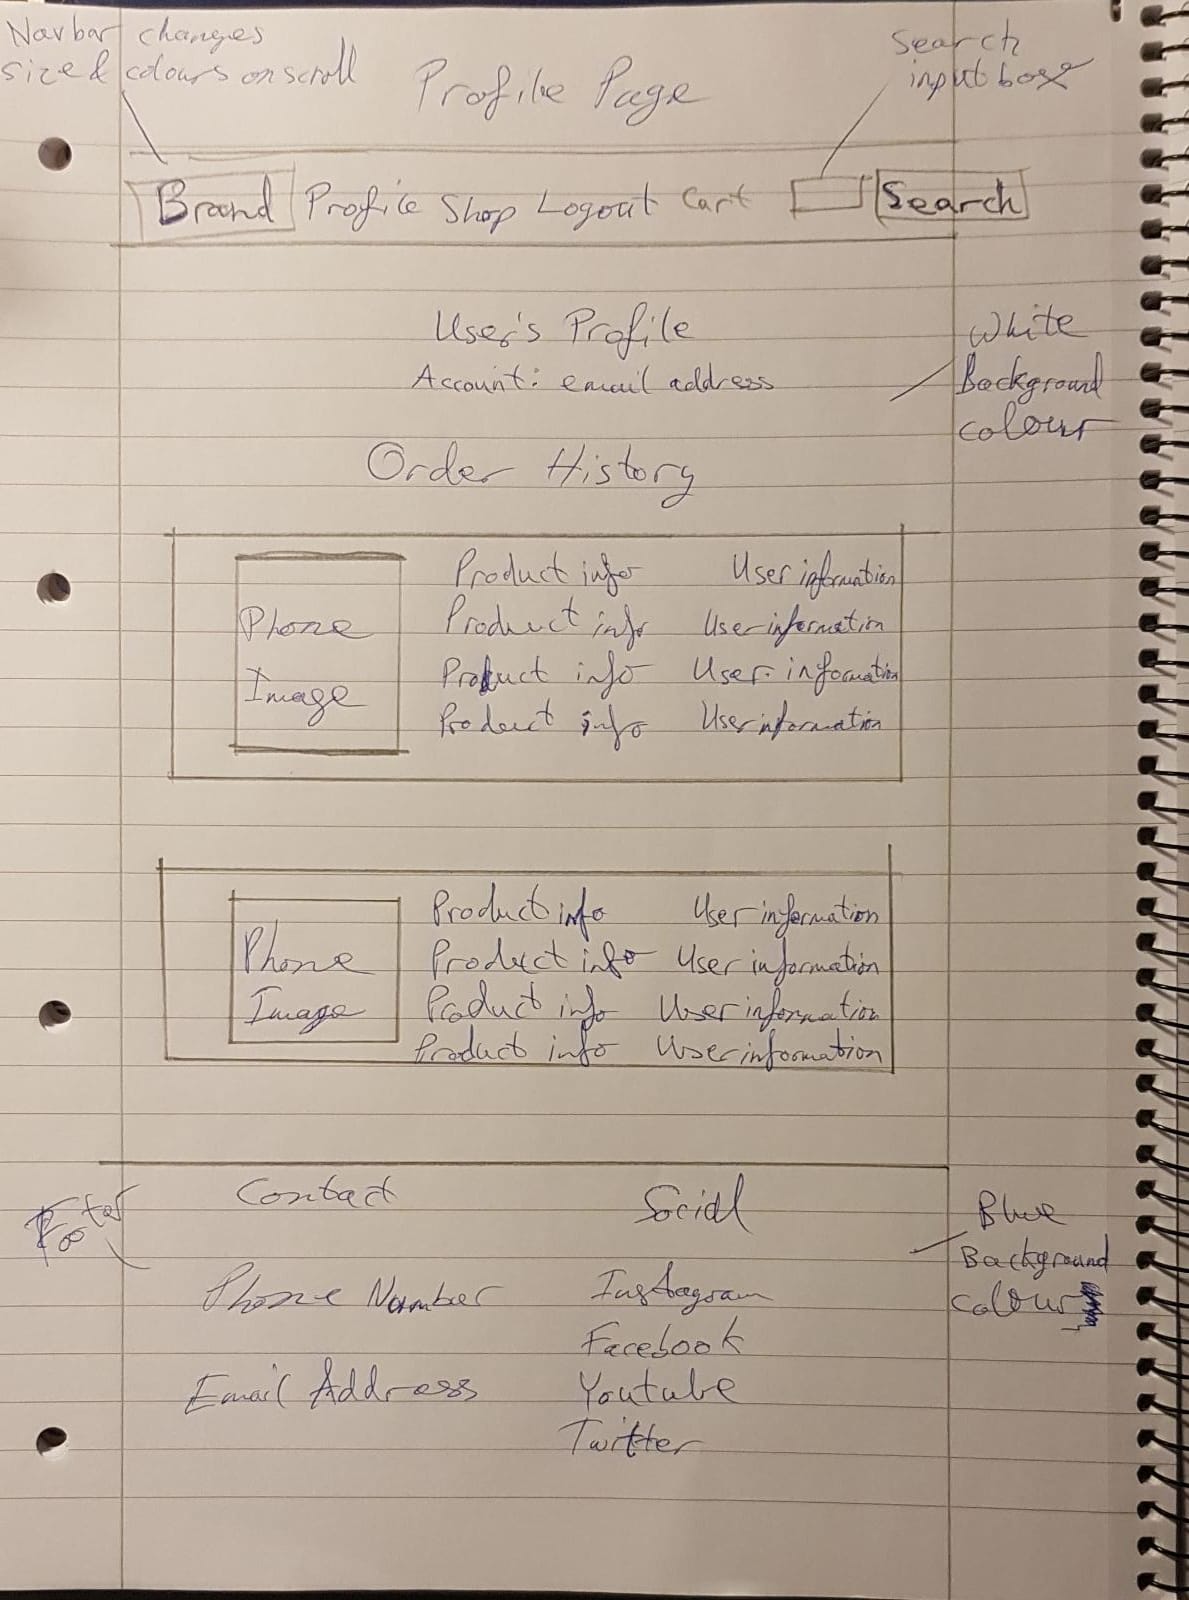 Navbar changes
size & colours on scroll
Profile Page
Search
input box
Brand Profile Shop Logout Cart Search
User's Profile
Account: email address
White
Background
colour
Order History
Phone
Image
Product info User information
Product info User information
Product info User information
Product info User information
Phone
Image
Product info User information
Product info User information
Product info User information
Product info User information
Footer
Contact
Social
Blue
Background
colour
Phone Number
Instagram
Facebook
Email Address
Youtube
Twitter